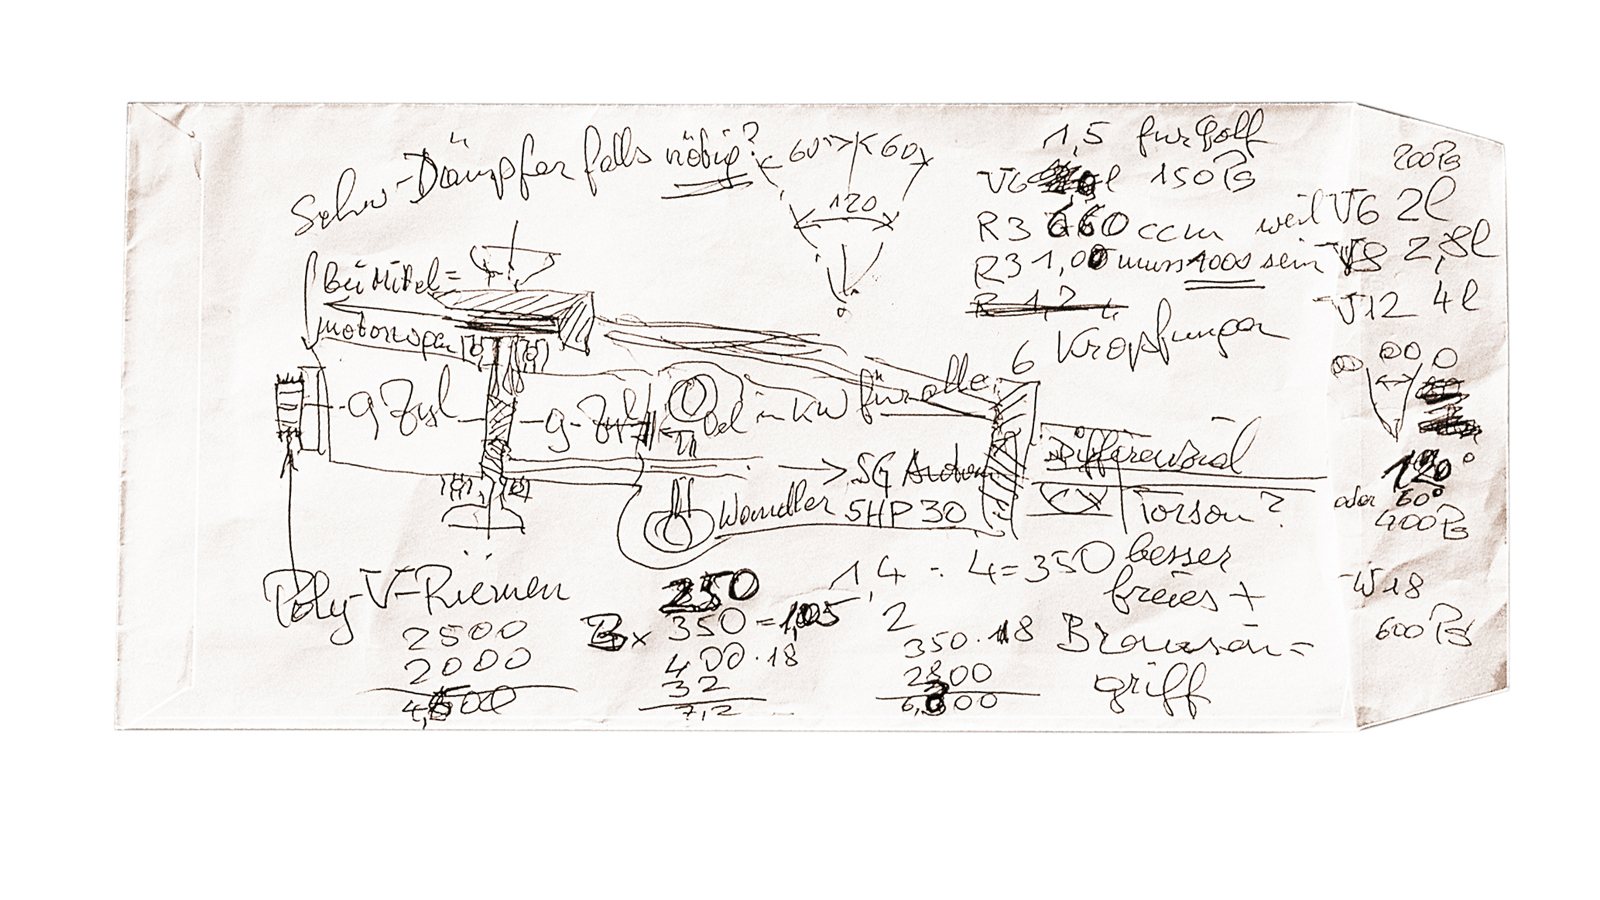 Schw-Dämpfer falls nötig?
60° 60
120
1,5 für Golf
V6 l 150PS
R3 660 ccm weil V6 2l
R3 1,00 muss 1000 sein V8 2,8l
V12 4l
200PS
6 Kröpfungen
Bei Mitel=
motorwagen
9 Zyl
9-Zyl
Öl in KW für alle
→ SG Autom
Wandler 5HP30
Differential
Torson?
besser
freies +
Browsain=
griff
120°
oder 60°
400PS
W18
600PS
Poly-V-Riemen
2500
2000
4,500
250
3x 350=1,05
400·18
32
7,2
1,4 : 4=350
2
350·18
2800
6,300